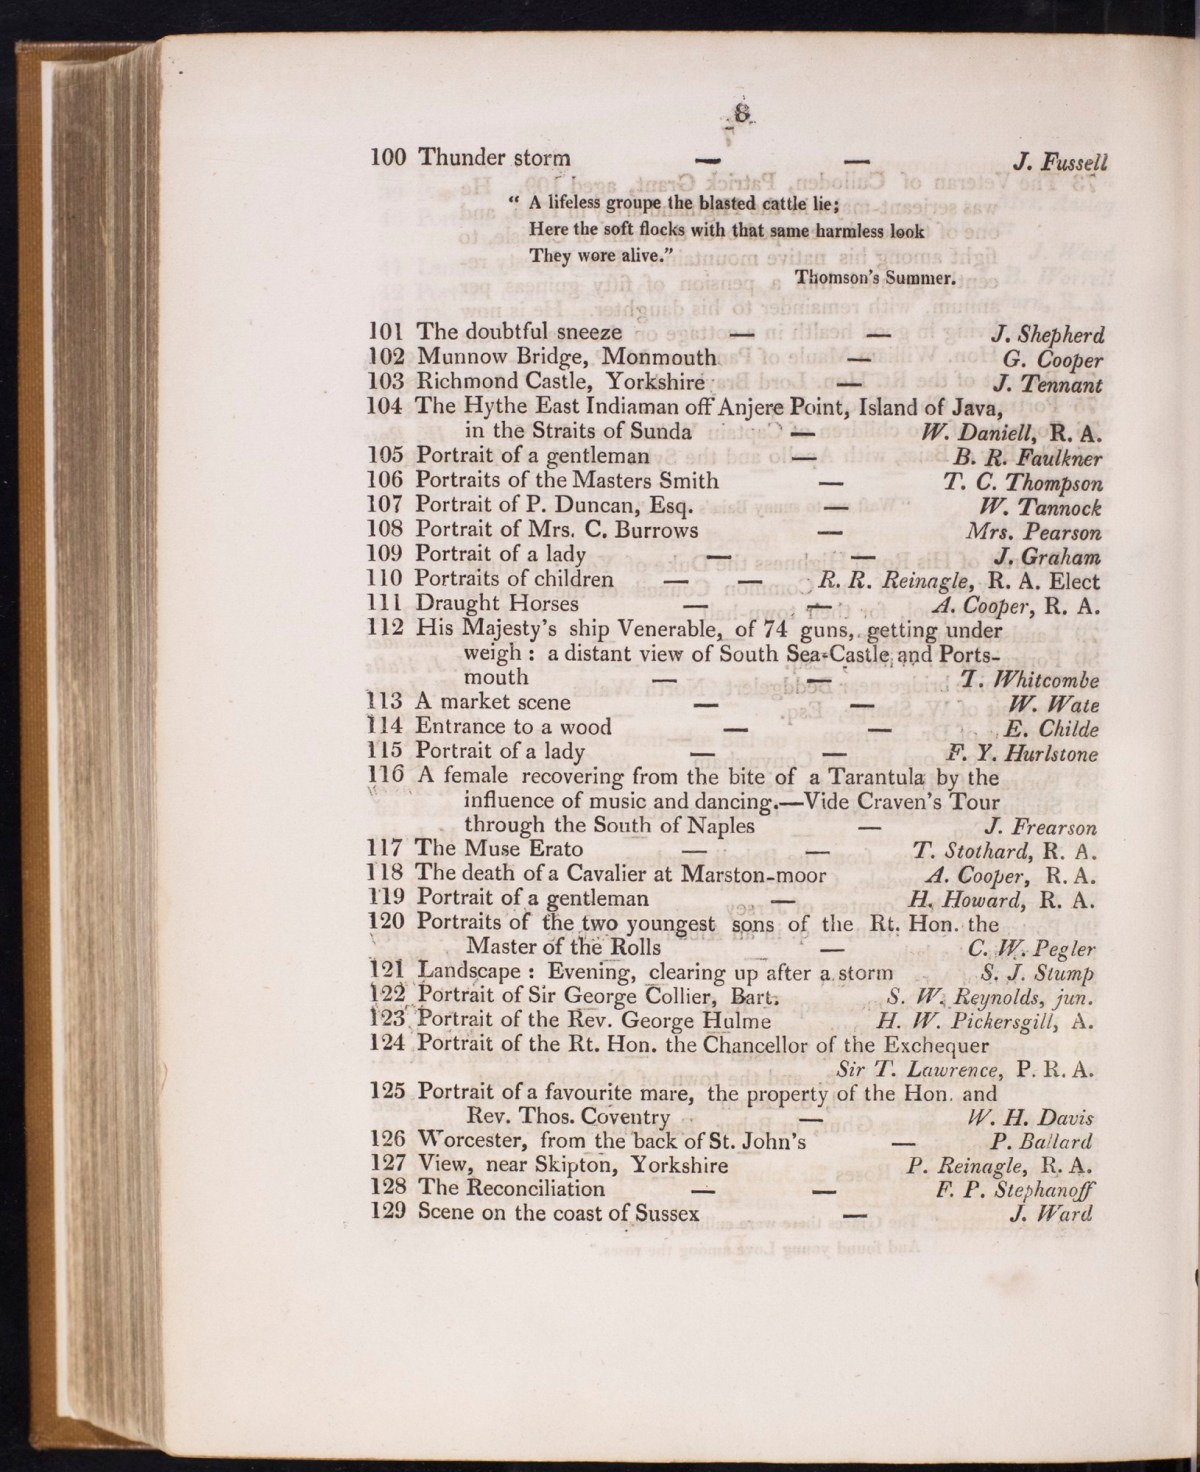 8
100 Thunder storm — — J. Fussell
“ A lifeless groupe the blasted cattle lie;
Here the soft flocks with that same harmless look
They wore alive.”
Thomson's Summer.
101 The doubtful sneeze — — J. Shepherd
102 Munnow Bridge, Monmouth — G. Cooper
103 Richmond Castle, Yorkshire — J. Tennant
104 The Hythe East Indiaman off Anjere Point, Island of Java,
in the Straits of Sunda — W. Daniell, R. A.
105 Portrait of a gentleman — B. R. Faulkner
106 Portraits of the Masters Smith — T. C. Thompson
107 Portrait of P. Duncan, Esq. — W. Tannock
108 Portrait of Mrs. C. Burrows — Mrs. Pearson
109 Portrait of a lady — — J. Graham
110 Portraits of children — — R. R. Reinagle, R. A. Elect
111 Draught Horses — — A. Cooper, R. A.
112 His Majesty's ship Venerable, of 74 guns, getting under
weigh : a distant view of South Sea-Castle and Ports-
mouth — — T. Whitcombe
113 A market scene — — W. Wate
114 Entrance to a wood — — E. Childe
115 Portrait of a lady — — F. Y. Hurlstone
116 A female recovering from the bite of a Tarantula by the
influence of music and dancing.—Vide Craven's Tour
through the South of Naples — J. Frearson
117 The Muse Erato — — T. Stothard, R. A.
118 The death of a Cavalier at Marston-moor A. Cooper, R. A.
119 Portrait of a gentleman — H. Howard, R. A.
120 Portraits of the two youngest sons of the Rt. Hon. the
Master of the Rolls — C. W. Pegler
121 Landscape : Evening, clearing up after a storm S. J. Stump
122 Portrait of Sir George Collier, Bart. S. W. Reynolds, jun.
123 Portrait of the Rev. George Hulme H. W. Pickersgill, A.
124 Portrait of the Rt. Hon. the Chancellor of the Exchequer
Sir T. Lawrence, P. R. A.
125 Portrait of a favourite mare, the property of the Hon. and
Rev. Thos. Coventry — W. H. Davis
126 Worcester, from the back of St. John's — P. Ballard
127 View, near Skipton, Yorkshire P. Reinagle, R. A.
128 The Reconciliation — — F. P. Stephanoff
129 Scene on the coast of Sussex — J. Ward